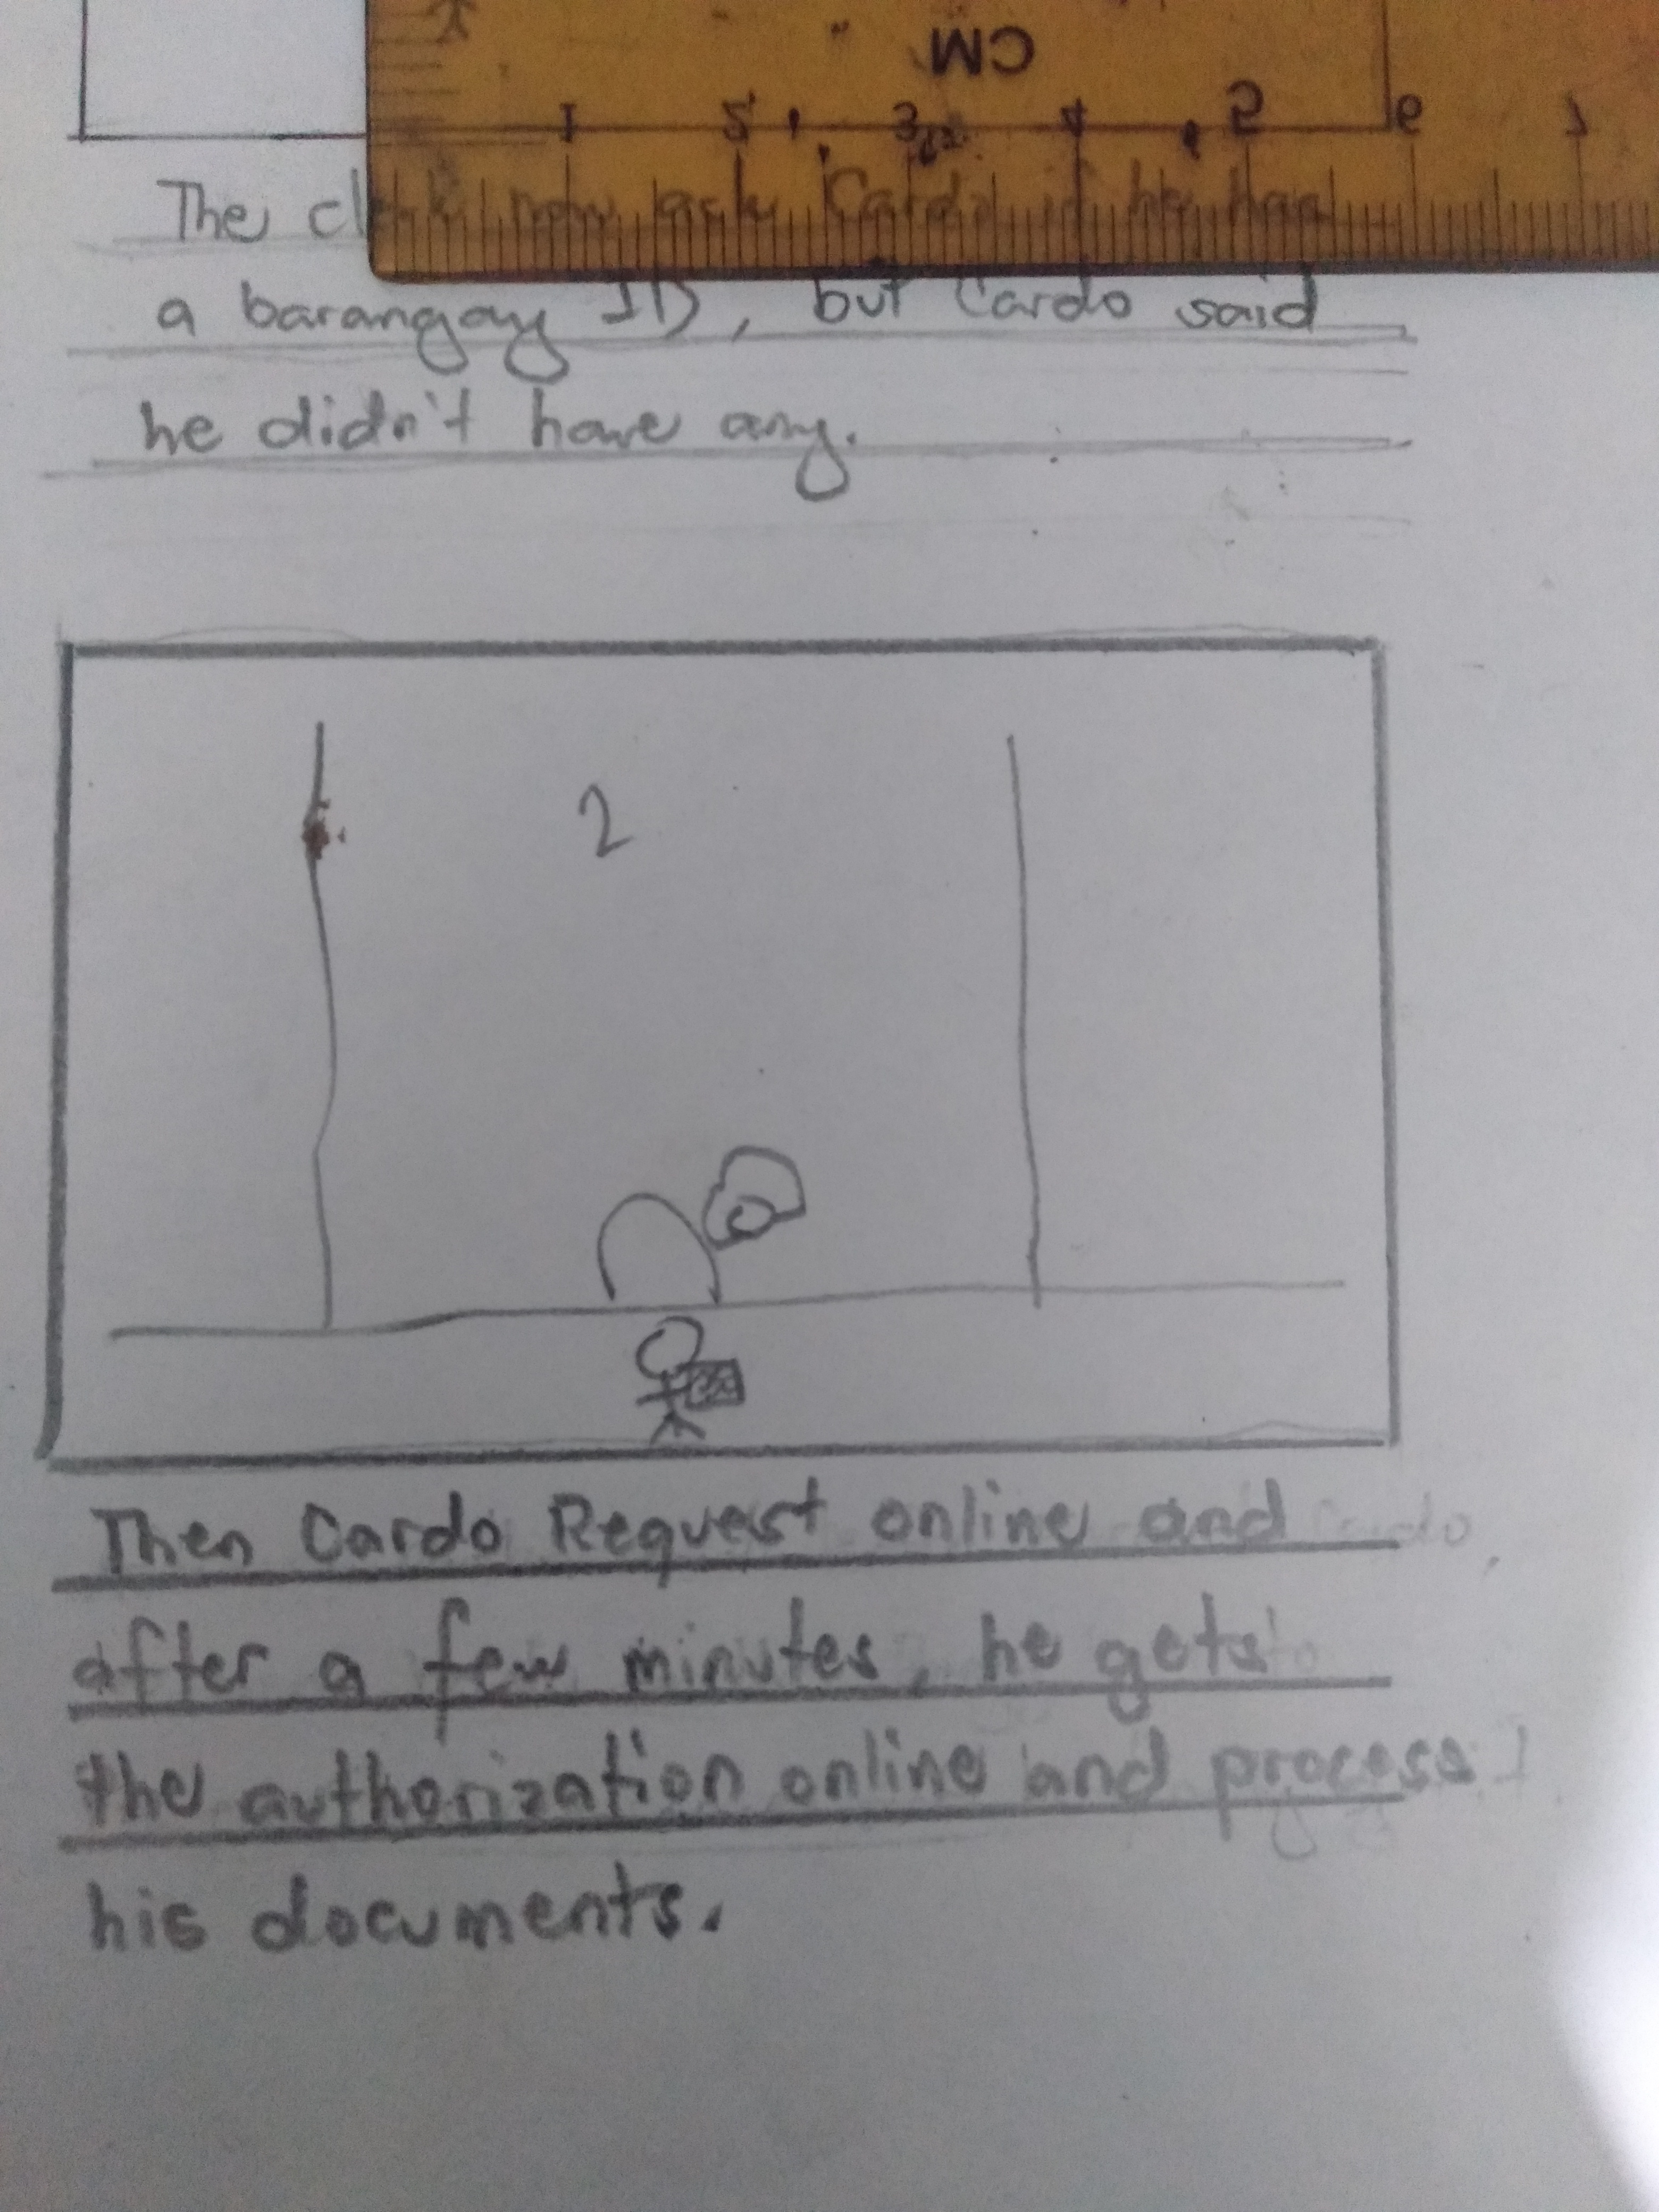 CM
1 2 3 4 5 6 7
The clerk now ask Cardo if he has
a barangay ID, but Cardo said
he didn't have any.
2
Then Cardo Request online and
after a few minutes, he gets
the authorization online and process
his documents.